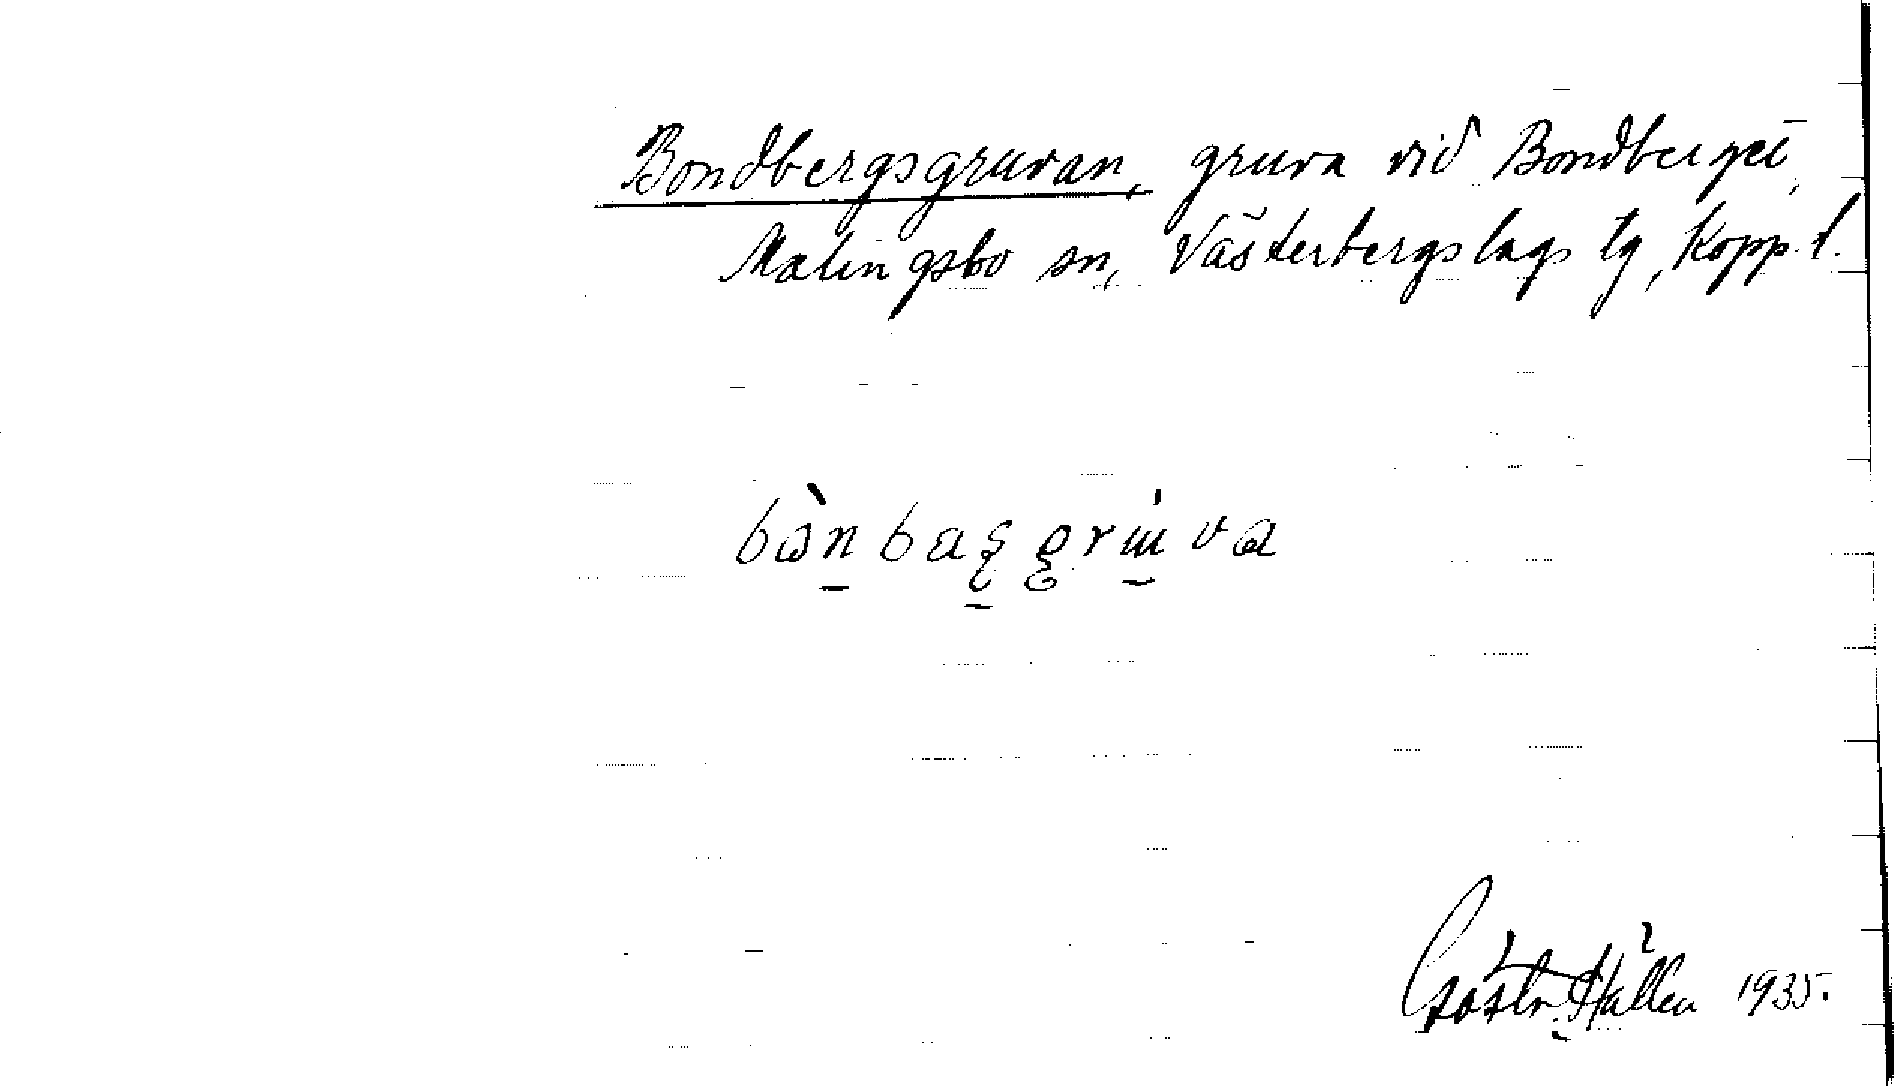 Bondbergsgruvan, gruva vid Bondberget,
Malingsbo sn, Västerbergslags tg, Kopp. l.
bὼn baʂ gru̇va
Gösta Hallén 1935.